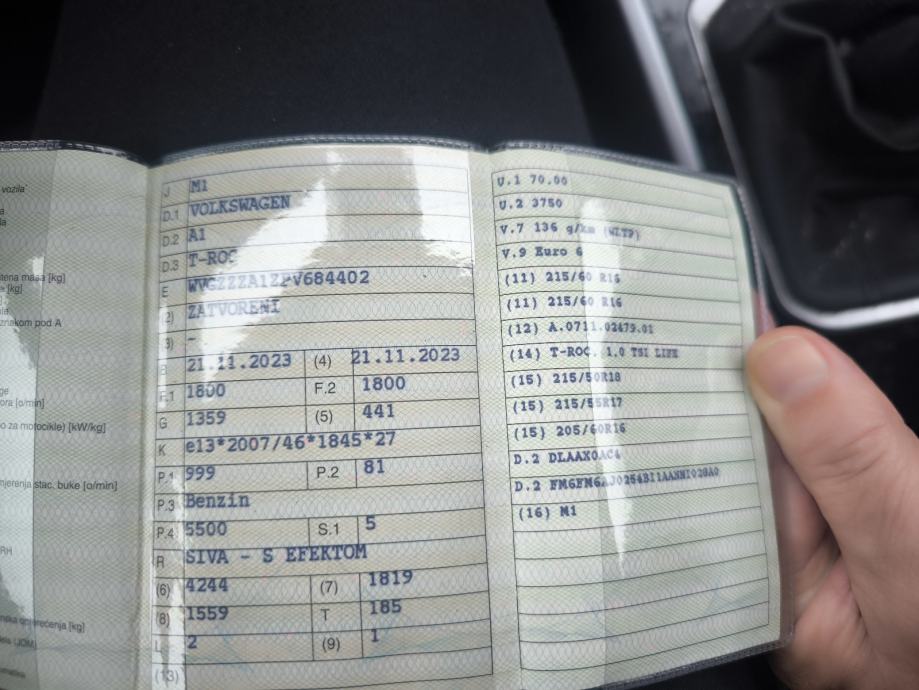 vozila'
a
la
masa [kg]
e [kg]
znakom pod A
ge
ora [o/min]
o za motocikle) [kW/kg]
mjerenja stac. buke [o/min]
RH
[kg]
(JOM)
J M1
D.1 VOLKSWAGEN
D.2 A1
D.3 T-ROC
E WVGZZZA1ZPV684402
(2) ZATVORENI
3) -
B 21.11.2023 (4) 21.11.2023
F.1 1800 F.2 1800
G 1359 (5) 441
K e13*2007/46*1845*27
P.1 999 P.2 81
P.3 Benzin
P.4 5500 S.1 5
R SIVA - S EFEKTOM
(6) 4244 (7) 1819
(8) 1559 T 185
L 2 (9) 1
(13)
U.1 70.00
U.2 3750
V.7 136 g/km (WLTP)
V.9 Euro 6
(11) 215/60 R16
(11) 215/60 R16
(12) A.0711.02479.01
(14) T-ROC. 1.0 TSI LIFE
(15) 215/50R18
(15) 215/55R17
(15) 205/60R16
D.2 DLAAX0AC4
D.2
(16) M1